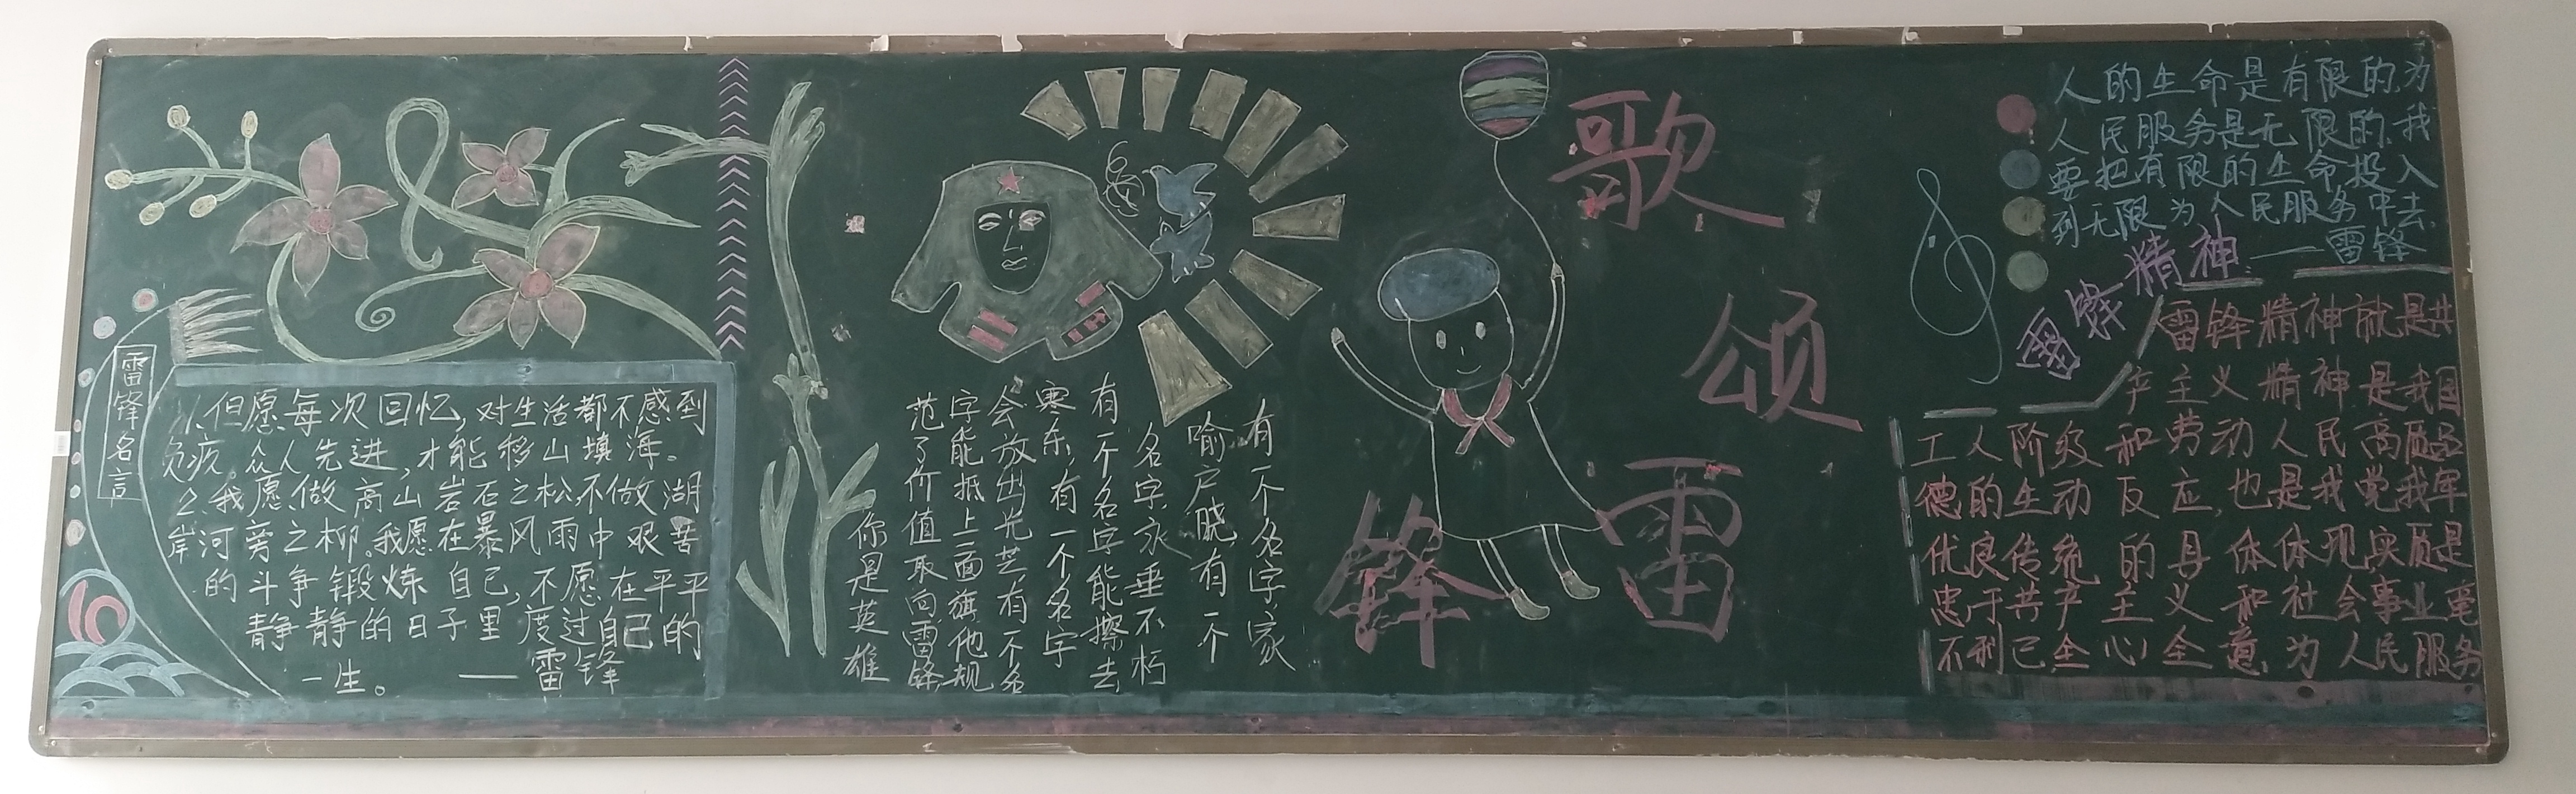 雷锋名言
1、但愿每次回忆,对生活都不感到
负疚。众人先进,才能移山填海。
2、我愿做高山岩石之松,不做湖
岸河旁之柳。我愿在暴风雨中艰苦
的斗争锻炼自己,不愿在平平
静静的日子里度过自己的
一生。——雷锋
有一个名字家
喻户晓,有一个
名字永垂不朽
有一个名字能擦去
寒冬,有一个名字
会放出光芒有一个名
字能抵上一面旗他规
范了价值取向雷锋
你是英雄
歌颂雷锋
人的生命是有限的,为
人民服务是无限的,我
要把有限的生命投入
到无限为人民服务中去
——雷锋
雷锋精神
雷锋精神就是共
产主义精神是我国
工人阶级和劳动人民高质品
德的生动反应,也是我党我军
优良传统的具体体现实质是
忠于共产主义和社会事业毫
不利己全心全意为人民服务